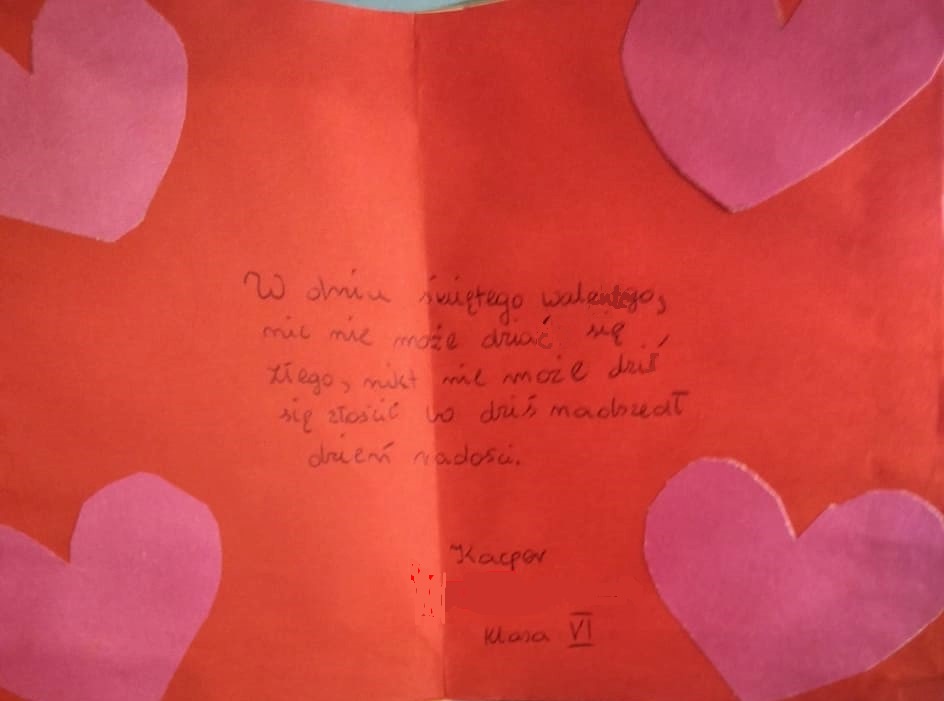 W dniu świętego walentego,
nic nie może dziać się
złego, nikt nie może dziś
się złościć bo dziś nadszedł
dzień radości.
Kacper
klasa VI